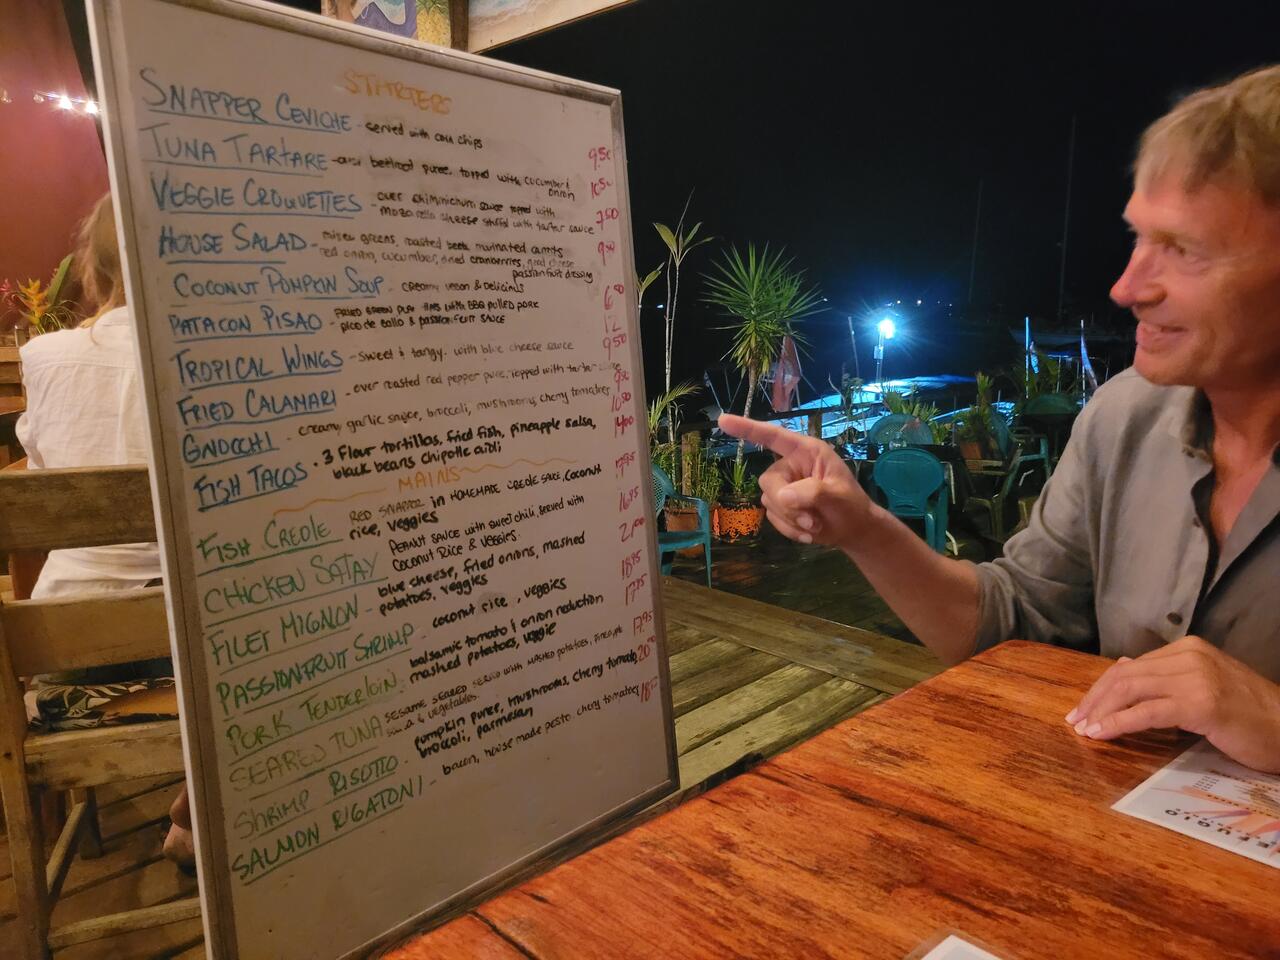 STARTERS
SNAPPER CEVICHE - served with corn chips 9.50
TUNA TARTARE - over beetroot puree, topped with cucumber & onion 10.50
VEGGIE CROQUETTES - over chimichurri sauce topped with
mozarella cheese stuffed with tartar sauce 7.50
HOUSE SALAD - mixed greens, roasted beets, marinated carrots 9.50
red onion, cucumber, dried cranberries, goat cheese
passion fruit dressing
COCONUT PUMPKIN SOUP - creamy vegan & delicious 6.50
PATACON PISAO - FRIED GREEN PLANTAINS WITH BBQ PULLED PORK 12
PICO DE GALLO & PASSION FRUIT SAUCE
TROPICAL WINGS - sweet & tangy. with blue cheese sauce 9.50
FRIED CALAMARI - over roasted red pepper puree, topped with tartar 9.50
GNOCCHI - creamy garlic sauce, broccoli, mushrooms, cherry tomatoes 10.50
FISH TACOS - 3 Flour tortillas, fried fish, pineapple salsa, 14.00
black beans chipotle aioli
MAINS
FISH CREOLE RED SNAPPER in HOMEMADE CREOLE SAUCE, Coconut 17.95
rice, veggies
CHICKEN SATAY PEANUT SAUCE with sweet chili, served with 16.95
Coconut Rice & Veggies.
FILET MIGNON - blue cheese, fried onions, mashed 21.00
potatoes, veggies
PASSIONFRUIT SHRIMP - coconut rice, veggies 18.95
PORK TENDERLOIN - balsamic tomato & onion reduction 17.95
mashed potatoes, veggie
SEARED TUNA SESAME SEARED SERVED WITH MASHED POTATOES, PINEAPPLE 17.95
& vegetables.
SHRIMP RISOTTO - pumpkin puree, mushrooms, cherry tomato, 20.00
broccoli, parmesan
SALMON RIGATONI - bacon, house made pesto, cherry tomatoes
EFUGIO